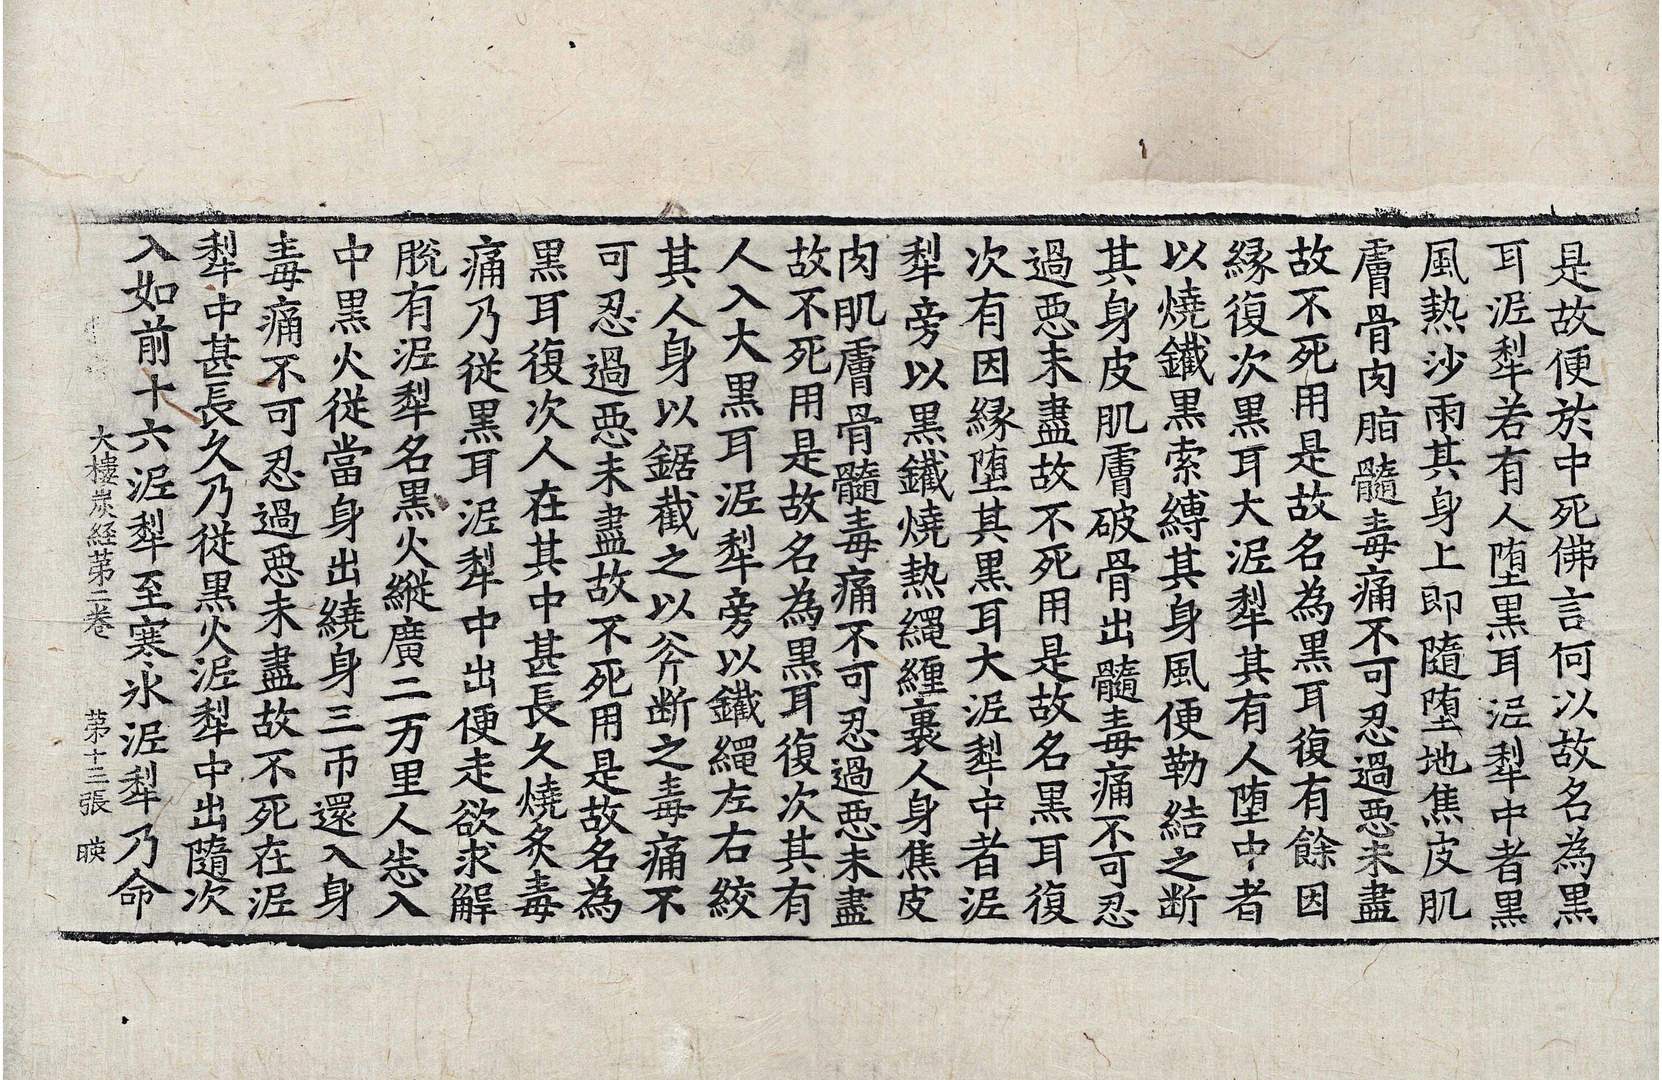 是故便於中死佛言何以故名為黒
耳泥犁若有人堕黒耳泥犁中者黒
風熱沙雨其身上即隨堕地焦皮肌
膚骨肉脂髓毒痛不可忍過悪未盡
故不死用是故名為黒耳復有餘因
縁復次黒耳大泥犁其有人堕中者
以燒鐵黒索縛其身風便勒結之断
其身皮肌膚破骨出髓毒痛不可忍
過悪未盡故不死用是故名黒耳復
次有因縁堕其黒耳大泥犁中者泥
犁旁以黒鐵燒熱繩纏裹人身焦皮
肉肌膚骨髓毒痛不可忍過悪未盡
故不死用是故名為黒耳復次其有
人入大黒耳泥犁旁以鐵繩左右絞
其人身以鋸截之以斧断之毒痛不
可忍過悪未盡故不死用是故名為
黒耳復次人在其中甚長久燒炙毒
痛乃従黒耳泥犁中出便走欲求解
脫有泥犁名黒火縱廣二万里人恙入
中黒火従當身出繞身三帀還入身
毒痛不可忍過悪未盡故不死在泥
犁中甚長久乃従黒火泥犁中出隨次
入如前十六泥犁至寒氷泥犁乃命
大樓炭経苐二卷 苐十二張 暎